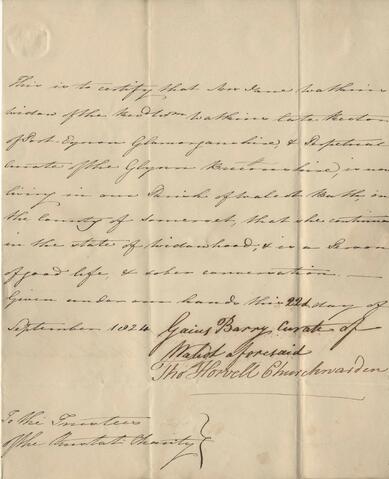 This is to certify that Mrs Jane Watkins
widow of the Revd Wm Watkins late Rector
of Port Eynon Glamorganshire, & Perpetual
Curate of the Glynn Brecconshire, is now
living in our Parish of Walcot Bath, in
the County of Somerset, that she continues
in the state of widowhood, & is a Person
of good life, & sober conversation. —
Given under our hands this 22d. day of
September 1824. Gaius Barry Curate of
Walcot aforesaid
Thos Horvell Churchwarden
To the Trustees
of the Charity